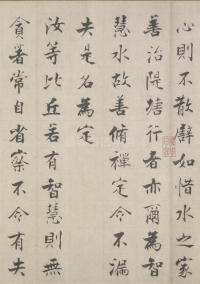 心則不散譬如惜水之家
善治隄塘行者亦爾為智
慧水故善脩禪定令不漏
失是名為定
汝等比丘若有智慧則無
貪著常自省察不令有失